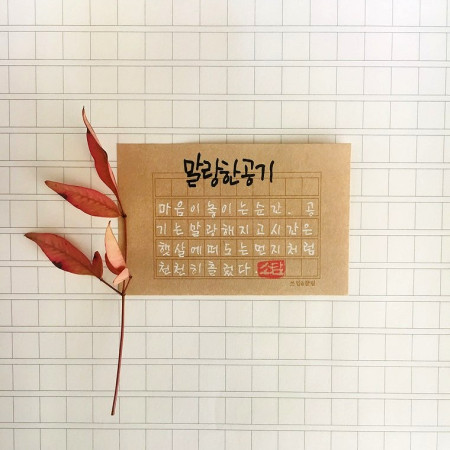 말랑한공기
마음이녹이는순간. 공
기는말랑해지고시간은
햇살에떠도는먼지처럼
천천히흘렀다. 소탄